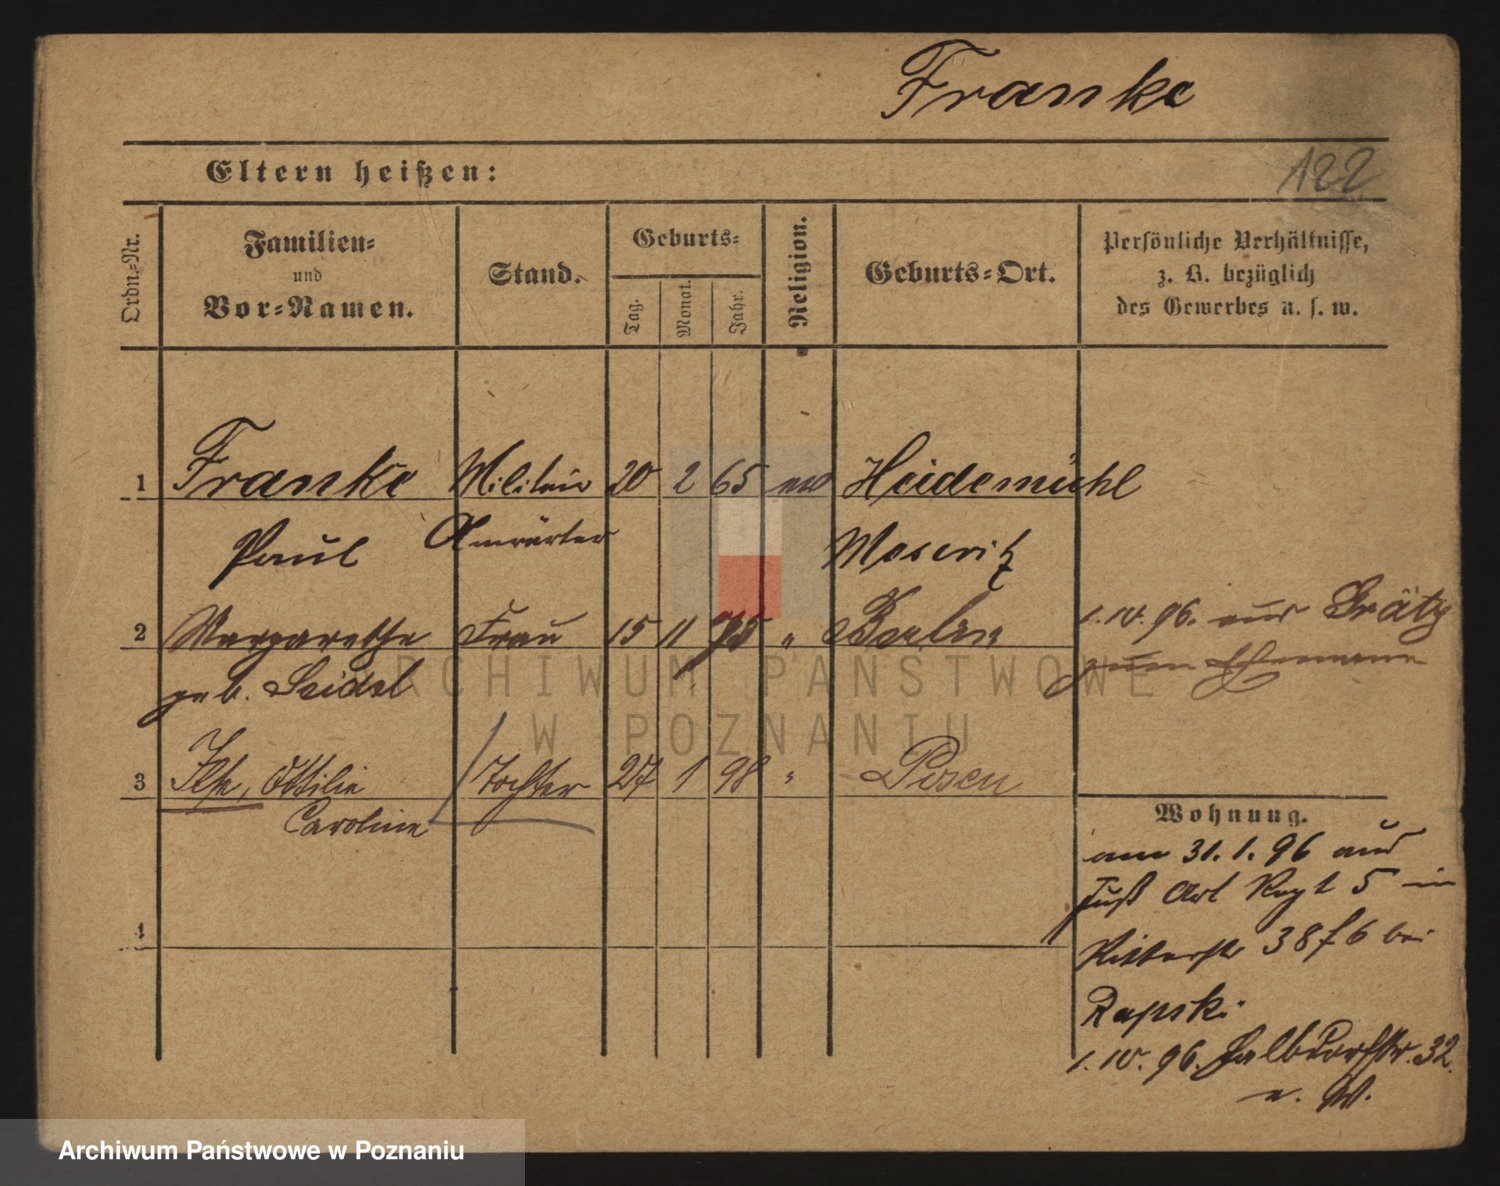 Franke
Eltern heißen:
122
Ordn.-Nr.
Familien-
und
Vor-Namen.
Stand.
Geburts-
Tag.
Monat.
Jahr.
Religion.
Geburts-Ort.
Persönliche Verhältnisse,
z. B. bezüglich
des Gewerbes u. s. w.
1 Franke Militair 20 2 65 ev Heidemühl
Paul Anwärter Meseritz
2 Margarethe Frau 15 11 75 " Berlin 1.IV.96. aus Grätz
geb. Seidel zum Ehemann
3 Ilse, Ottilie Tochter 27 1 98 " Posen
Caroline
4
Wohnung.
am 31.1.96 aus
Fuß Art Regt 5 in
Ritterstr 38 f 6 bei
Rapski
1.IV.96. Halbdorfstr. 32.
e. W.
ARCHIWUM PAŃSTWOWE
W POZNANIU
Archiwum Państwowe w Poznaniu